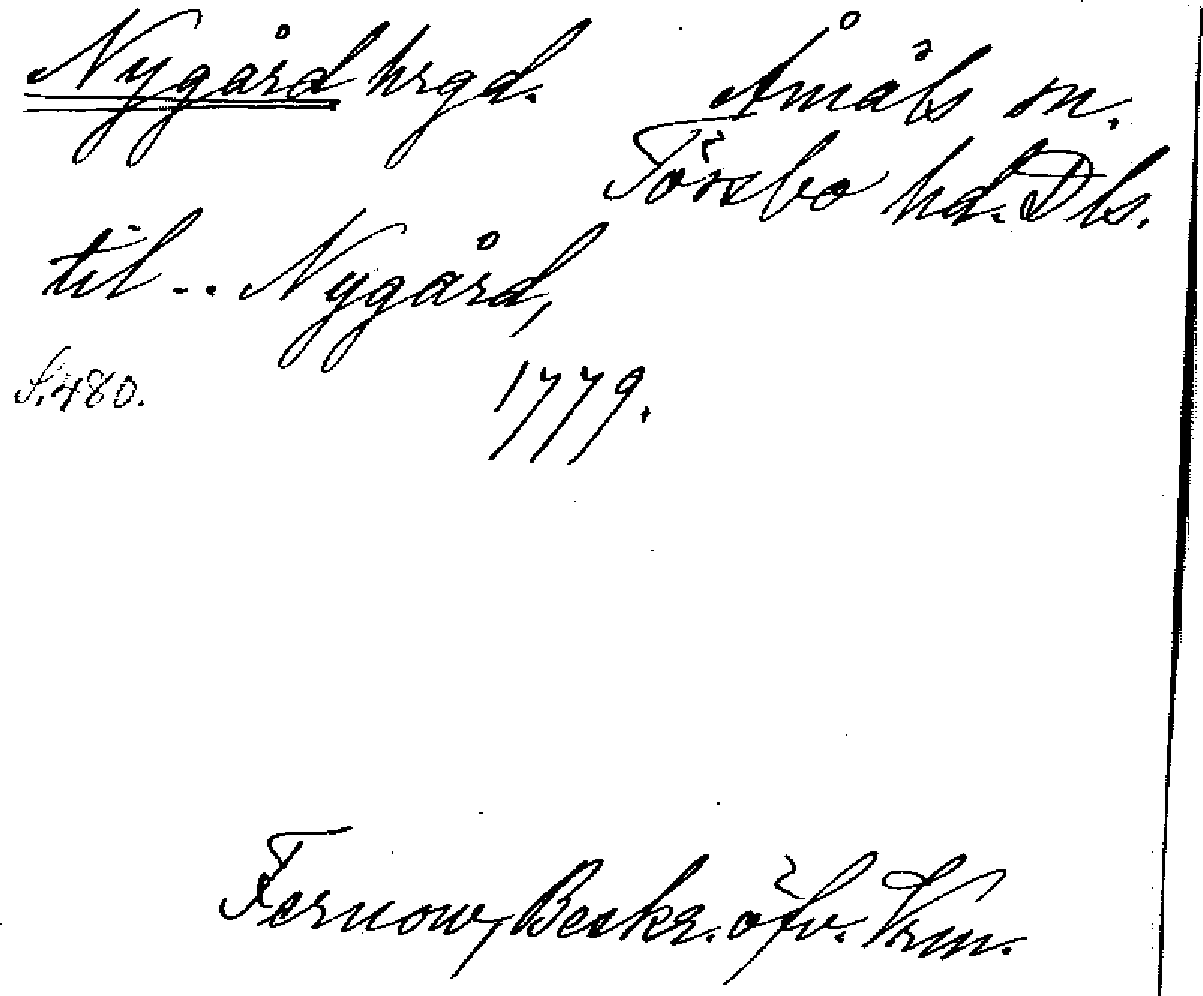 Nygård hrgd.
Åmåls sn.
Tössbo hd. Dls.
til .. Nygård,
S. 480.
1779.
Fernow, Beskr. öfv. Vrm.